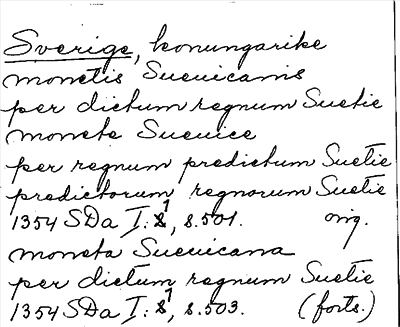 Sverige, konungarike
monetis Sueuicanis
per dictum regnum Suetie
moneta Sueuice
per regnum predictum Suetie
predictorum regnorum Suetie
1354 SDa I:1, s.501. orig.
moneta Sueuicana
per dictum regnum Suetie
1354 SDa I:1, s.503. (forts.)